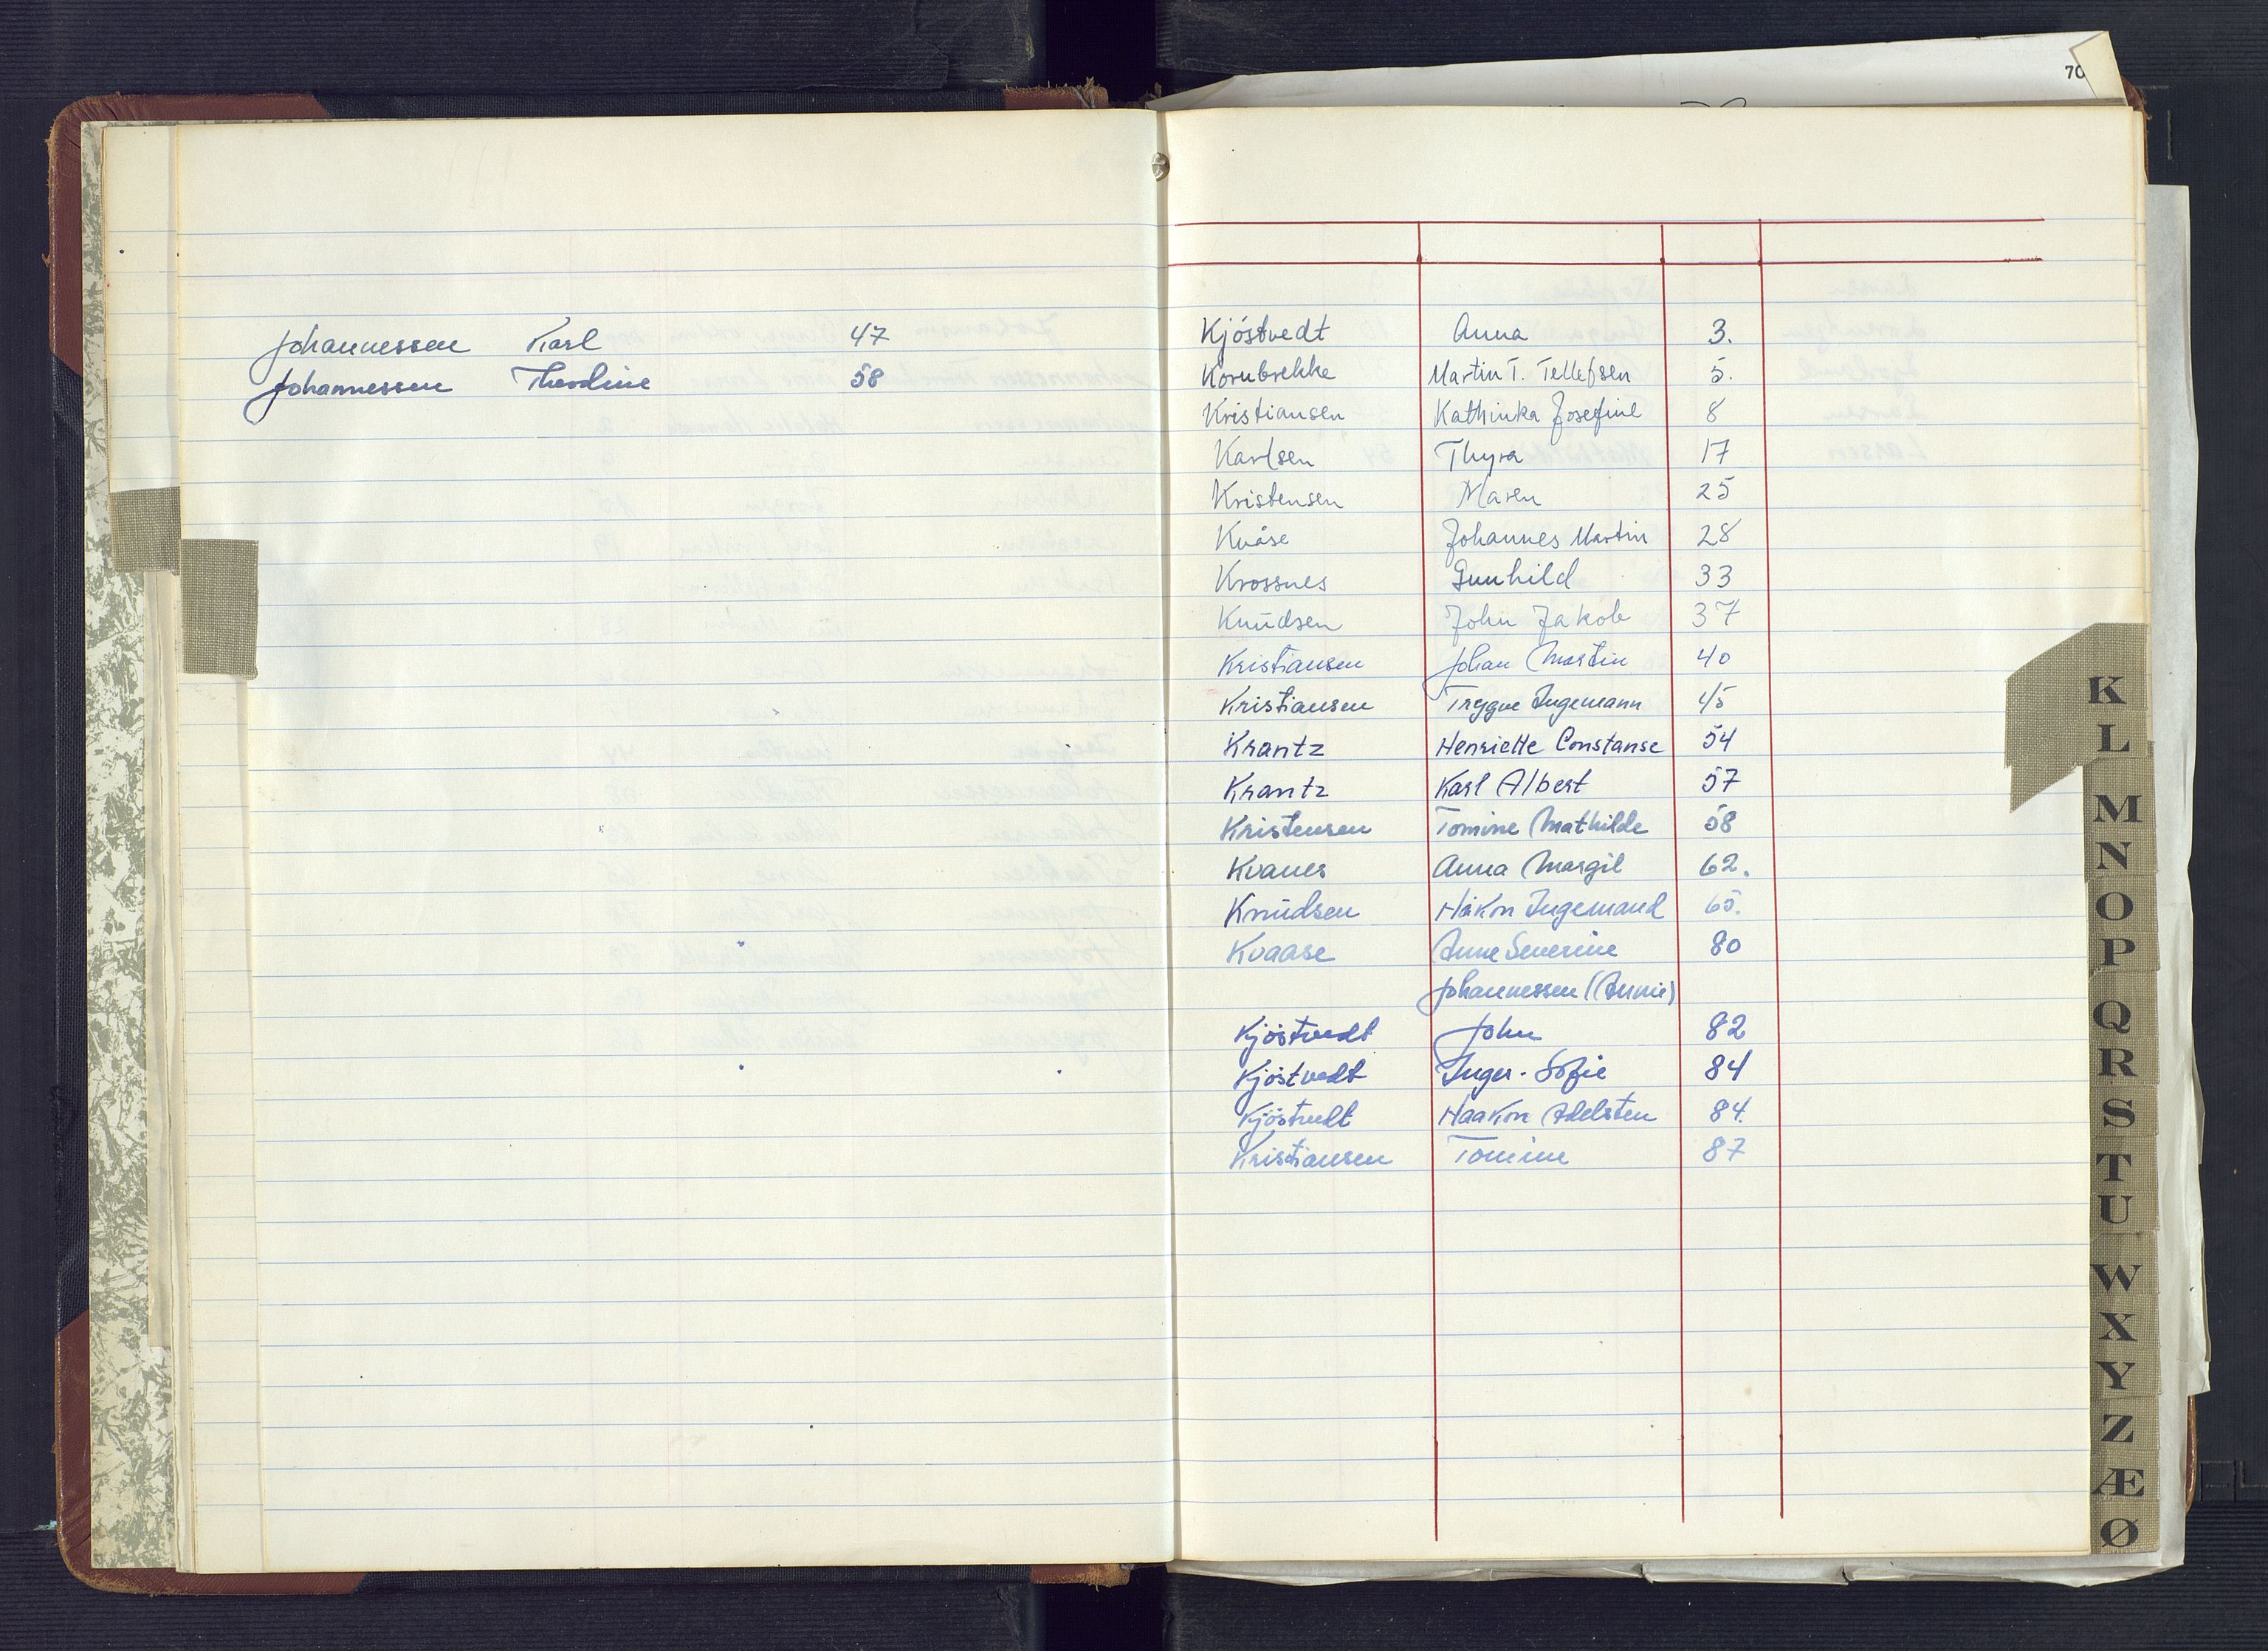 70
Johannessen Karl 47
Johannessen Theodine 58
Kjöstvedt Anna 3.
Kornbrekke Martin T. Tellefsen 5.
Kristiansen Kathinka Josefine 8
Karlsen Thyra 17
Kristensen Maren 25
Kvåse Johannes Martin 28
Krossnes Gunhild 33
Knudsen John Jakob 37
Kristiansen Johan Martin 40
Kristiansen Trygve Ingemann 45
Krantz Henriette Constanse 54
Krantz Karl Albert 57
Kristensen Tomine Mathilde 58
Kvanes Anna Margit 62.
Knudsen Håkon Ingemand 65.
Kvaase Anne Severine 80
Johannessen (Annie)
Kjöstvedt John 82
Kjöstvedt Inger-Sofie 84
Kjöstvedt Haakon Adelsten 84.
Kristiansen Tomine 87
K
L
M
N
O
P
Q
R
S
T
U
W
X
Y
Z
Æ
Ø